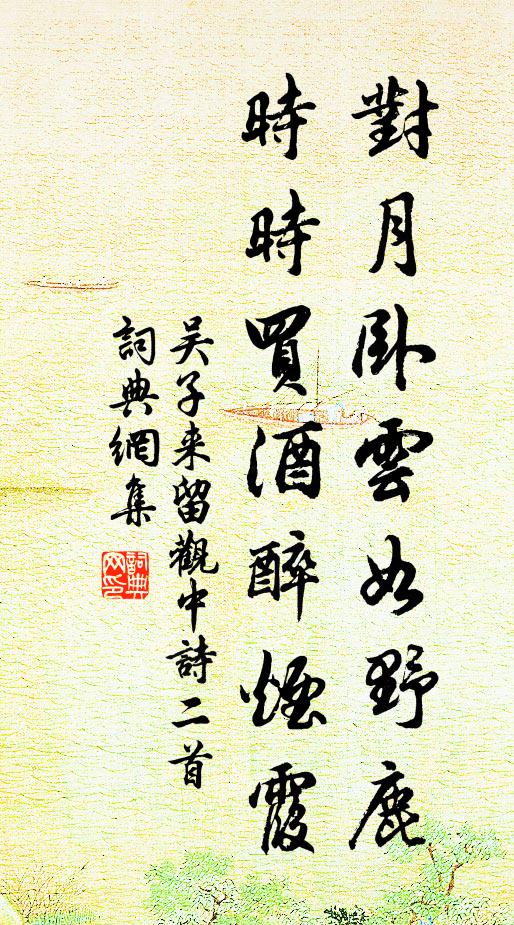 對月卧雲如野鹿
時時買酒醉煙霞
吴子来留觀中詩二首
詞典網集
詞典
网印